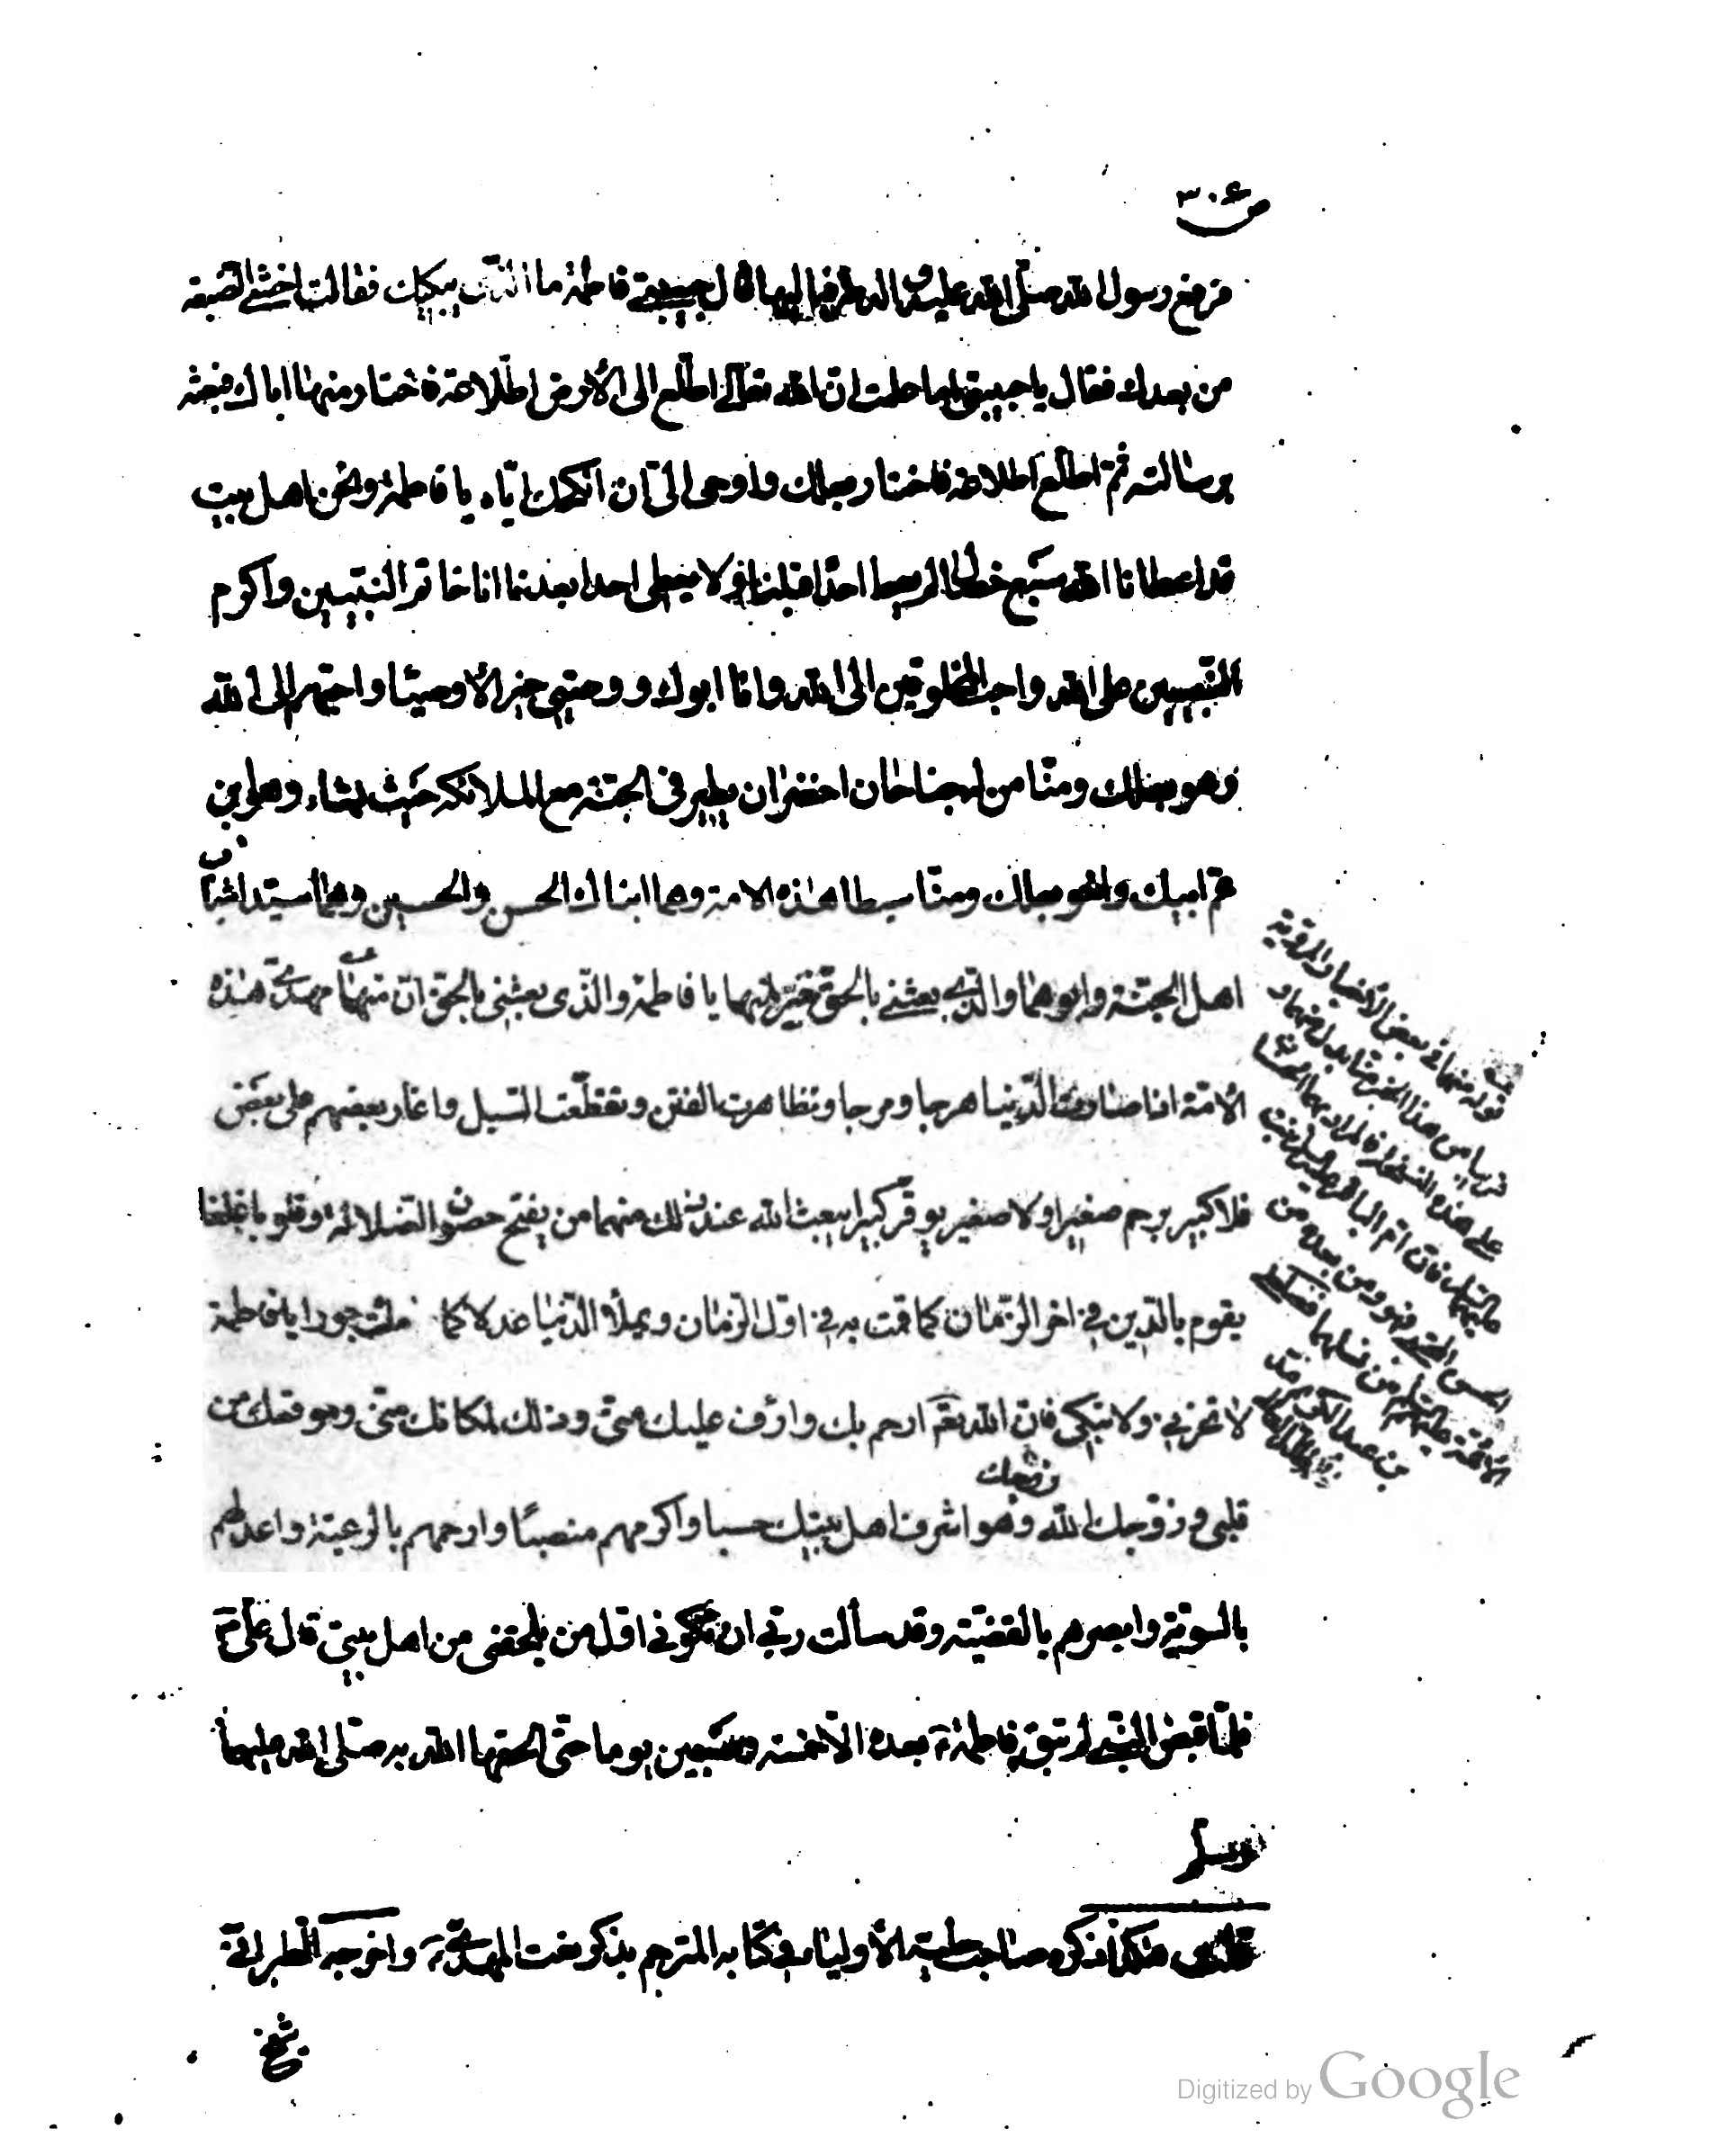 ص ٣٠٤
فرفع رسول الله صلى الله عليه وآله طرفه اليها قال حبيبتي فاطمة ما الذي يبكيك فقالت اخشى الضيعة
من بعدك فقال يا حبيبتي اما علمت ان الله تعالى اطلع الى الأرض اطلاعة فاختار منها اباك فبعثه
برسالته ثم اطلع اطلاعة فاختار بعلك واوحى الىّ ان انكحك ايّاه يا فاطمة ونحن اهل بيت
قد اعطانا الله سبع خصال لم يعط احدا قبلنا ولا يعطى احدا بعدنا انا خاتم النبيّين واكرم
النبيّين على الله واحبّ المخلوقين الى الله وانا ابوك ووصيّي خير الأوصياء واحبّهم الى الله
وهو بعلك ومنّا من له جناحان اخضران يطير في الجنّة مع الملائكة حيث يشاء وهو ابن
عمّ ابيك واخو بعلك ومنّا سبطا هذه الامة وهما ابناك الحسن والحسين وهما سيّدا شباب
اهل الجنّة وابوهما والذي بعثني بالحقّ خير منهما يا فاطمة والذي بعثني بالحق انّ منهما مهديّ هذه
الأمّة اذا صارت الدّنيا هرجا ومرجا وتظاهرت الفتن وتقطّعت السّبل واغار بعضهم على بعض
فلا كبير يرحم صغيرا ولا صغير يوقّر كبيرا يبعث الله عند ذلك منهما من يفتح حصون الضلالة وقلوبا غلفا
يقوم بالدّين في اخر الزّمان كما قمت به في اوّل الزمان ويملأ الدّنيا عدلا كما ملئت جورا يا فاطمة
لا تحزني ولا تبكي فان الله تعَ ارحم بك وارأف عليك منّي وذلك لمكانك منّي وموقعك من
قلبي وزوّجك الله زوجك وهو اشرف اهل بيتك حسبا واكرمهم منصبًا وارحمهم بالرعيّة واعدلهم
بالسويّة وابصرهم بالقضيّة وقد سألت ربّي ان تكوني اوّل من يلحقني من اهل بيتي قال علي ع
فلمّا قبض النبيّ لم تبق فاطمة ع بعده الّا خمسة وسبعين يوما حتّى الحقها الله به صلّى الله عليهما
وسلم
قلت هكذا ذكره صاحب حلية الأولياء في كتابه المترجم بذكر نعت المهديّ ع واخرجه الطبراني
شيخ
قوله منهما في بعض
من هذا الخبر
على هذه النسخة فالمراد بهما
فانّ امّ الباقر عليه السلام بنت
الحسن المجتبى فهو ومن بعده من
الأئمة عليهم السلام من نسلهما
Digitized by Google